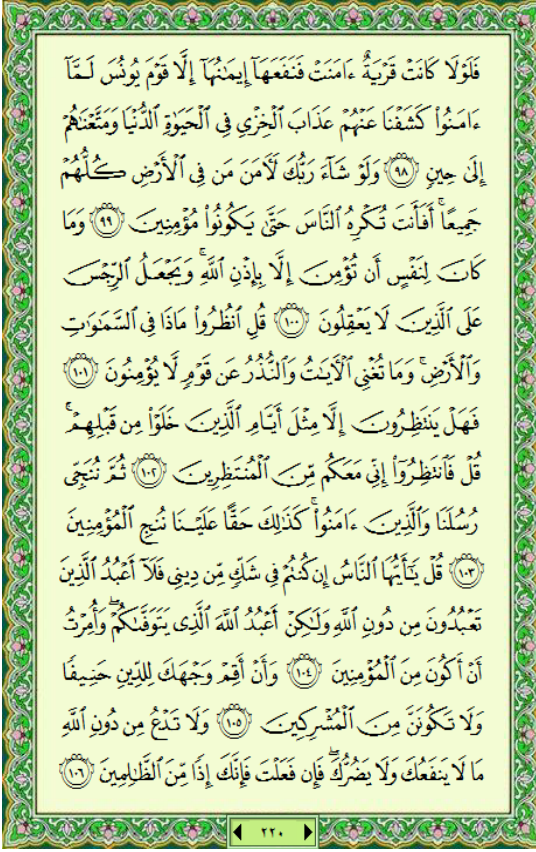 فَلَوْلَا كَانَتْ قَرْيَةٌ ءَامَنَتْ فَنَفَعَهَآ إِيمَٰنُهَآ إِلَّا قَوْمَ يُونُسَ لَمَّآ
ءَامَنُوا۟ كَشَفْنَا عَنْهُمْ عَذَابَ ٱلْخِزْىِ فِى ٱلْحَيَوٰةِ ٱلدُّنْيَا وَمَتَّعْنَٰهُمْ
إِلَىٰ حِينٍ ﴿٩٨﴾ وَلَوْ شَآءَ رَبُّكَ لَءَامَنَ مَن فِى ٱلْأَرْضِ كُلُّهُمْ
جَمِيعًا ۚ أَفَأَنتَ تُكْرِهُ ٱلنَّاسَ حَتَّىٰ يَكُونُوا۟ مُؤْمِنِينَ ﴿٩٩﴾ وَمَا
كَانَ لِنَفْسٍ أَن تُؤْمِنَ إِلَّا بِإِذْنِ ٱللَّهِ ۚ وَيَجْعَلُ ٱلرِّجْسَ
عَلَى ٱلَّذِينَ لَا يَعْقِلُونَ ﴿١٠٠﴾ قُلِ ٱنظُرُوا۟ مَاذَا فِى ٱلسَّمَٰوَٰتِ
وَٱلْأَرْضِ ۚ وَمَا تُغْنِى ٱلْءَايَٰتُ وَٱلنُّذُرُ عَن قَوْمٍ لَّا يُؤْمِنُونَ ﴿١٠١﴾
فَهَلْ يَنتَظِرُونَ إِلَّا مِثْلَ أَيَّامِ ٱلَّذِينَ خَلَوْا۟ مِن قَبْلِهِمْ ۚ
قُلْ فَٱنتَظِرُوٓا۟ إِنِّى مَعَكُم مِّنَ ٱلْمُنتَظِرِينَ ﴿١٠٢﴾ ثُمَّ نُنَجِّى
رُسُلَنَا وَٱلَّذِينَ ءَامَنُوا۟ ۚ كَذَٰلِكَ حَقًّا عَلَيْنَا نُنجِ ٱلْمُؤْمِنِينَ
﴿١٠٣﴾ قُلْ يَٰٓأَيُّهَا ٱلنَّاسُ إِن كُنتُمْ فِى شَكٍّ مِّن دِينِى فَلَآ أَعْبُدُ ٱلَّذِينَ
تَعْبُدُونَ مِن دُونِ ٱللَّهِ وَلَٰكِنْ أَعْبُدُ ٱللَّهَ ٱلَّذِى يَتَوَفَّىٰكُمْ ۖ وَأُمِرْتُ
أَنْ أَكُونَ مِنَ ٱلْمُؤْمِنِينَ ﴿١٠٤﴾ وَأَنْ أَقِمْ وَجْهَكَ لِلدِّينِ حَنِيفًا
وَلَا تَكُونَنَّ مِنَ ٱلْمُشْرِكِينَ ﴿١٠٥﴾ وَلَا تَدْعُ مِن دُونِ ٱللَّهِ
مَا لَا يَنفَعُكَ وَلَا يَضُرُّكَ ۖ فَإِن فَعَلْتَ فَإِنَّكَ إِذًا مِّنَ ٱلظَّٰلِمِينَ ﴿١٠٦﴾
٢٢٠